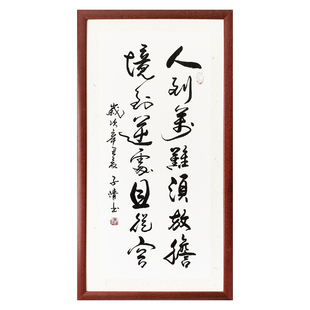 人到萬難須放膽
境到逆處且從容
歲次辛丑
子書